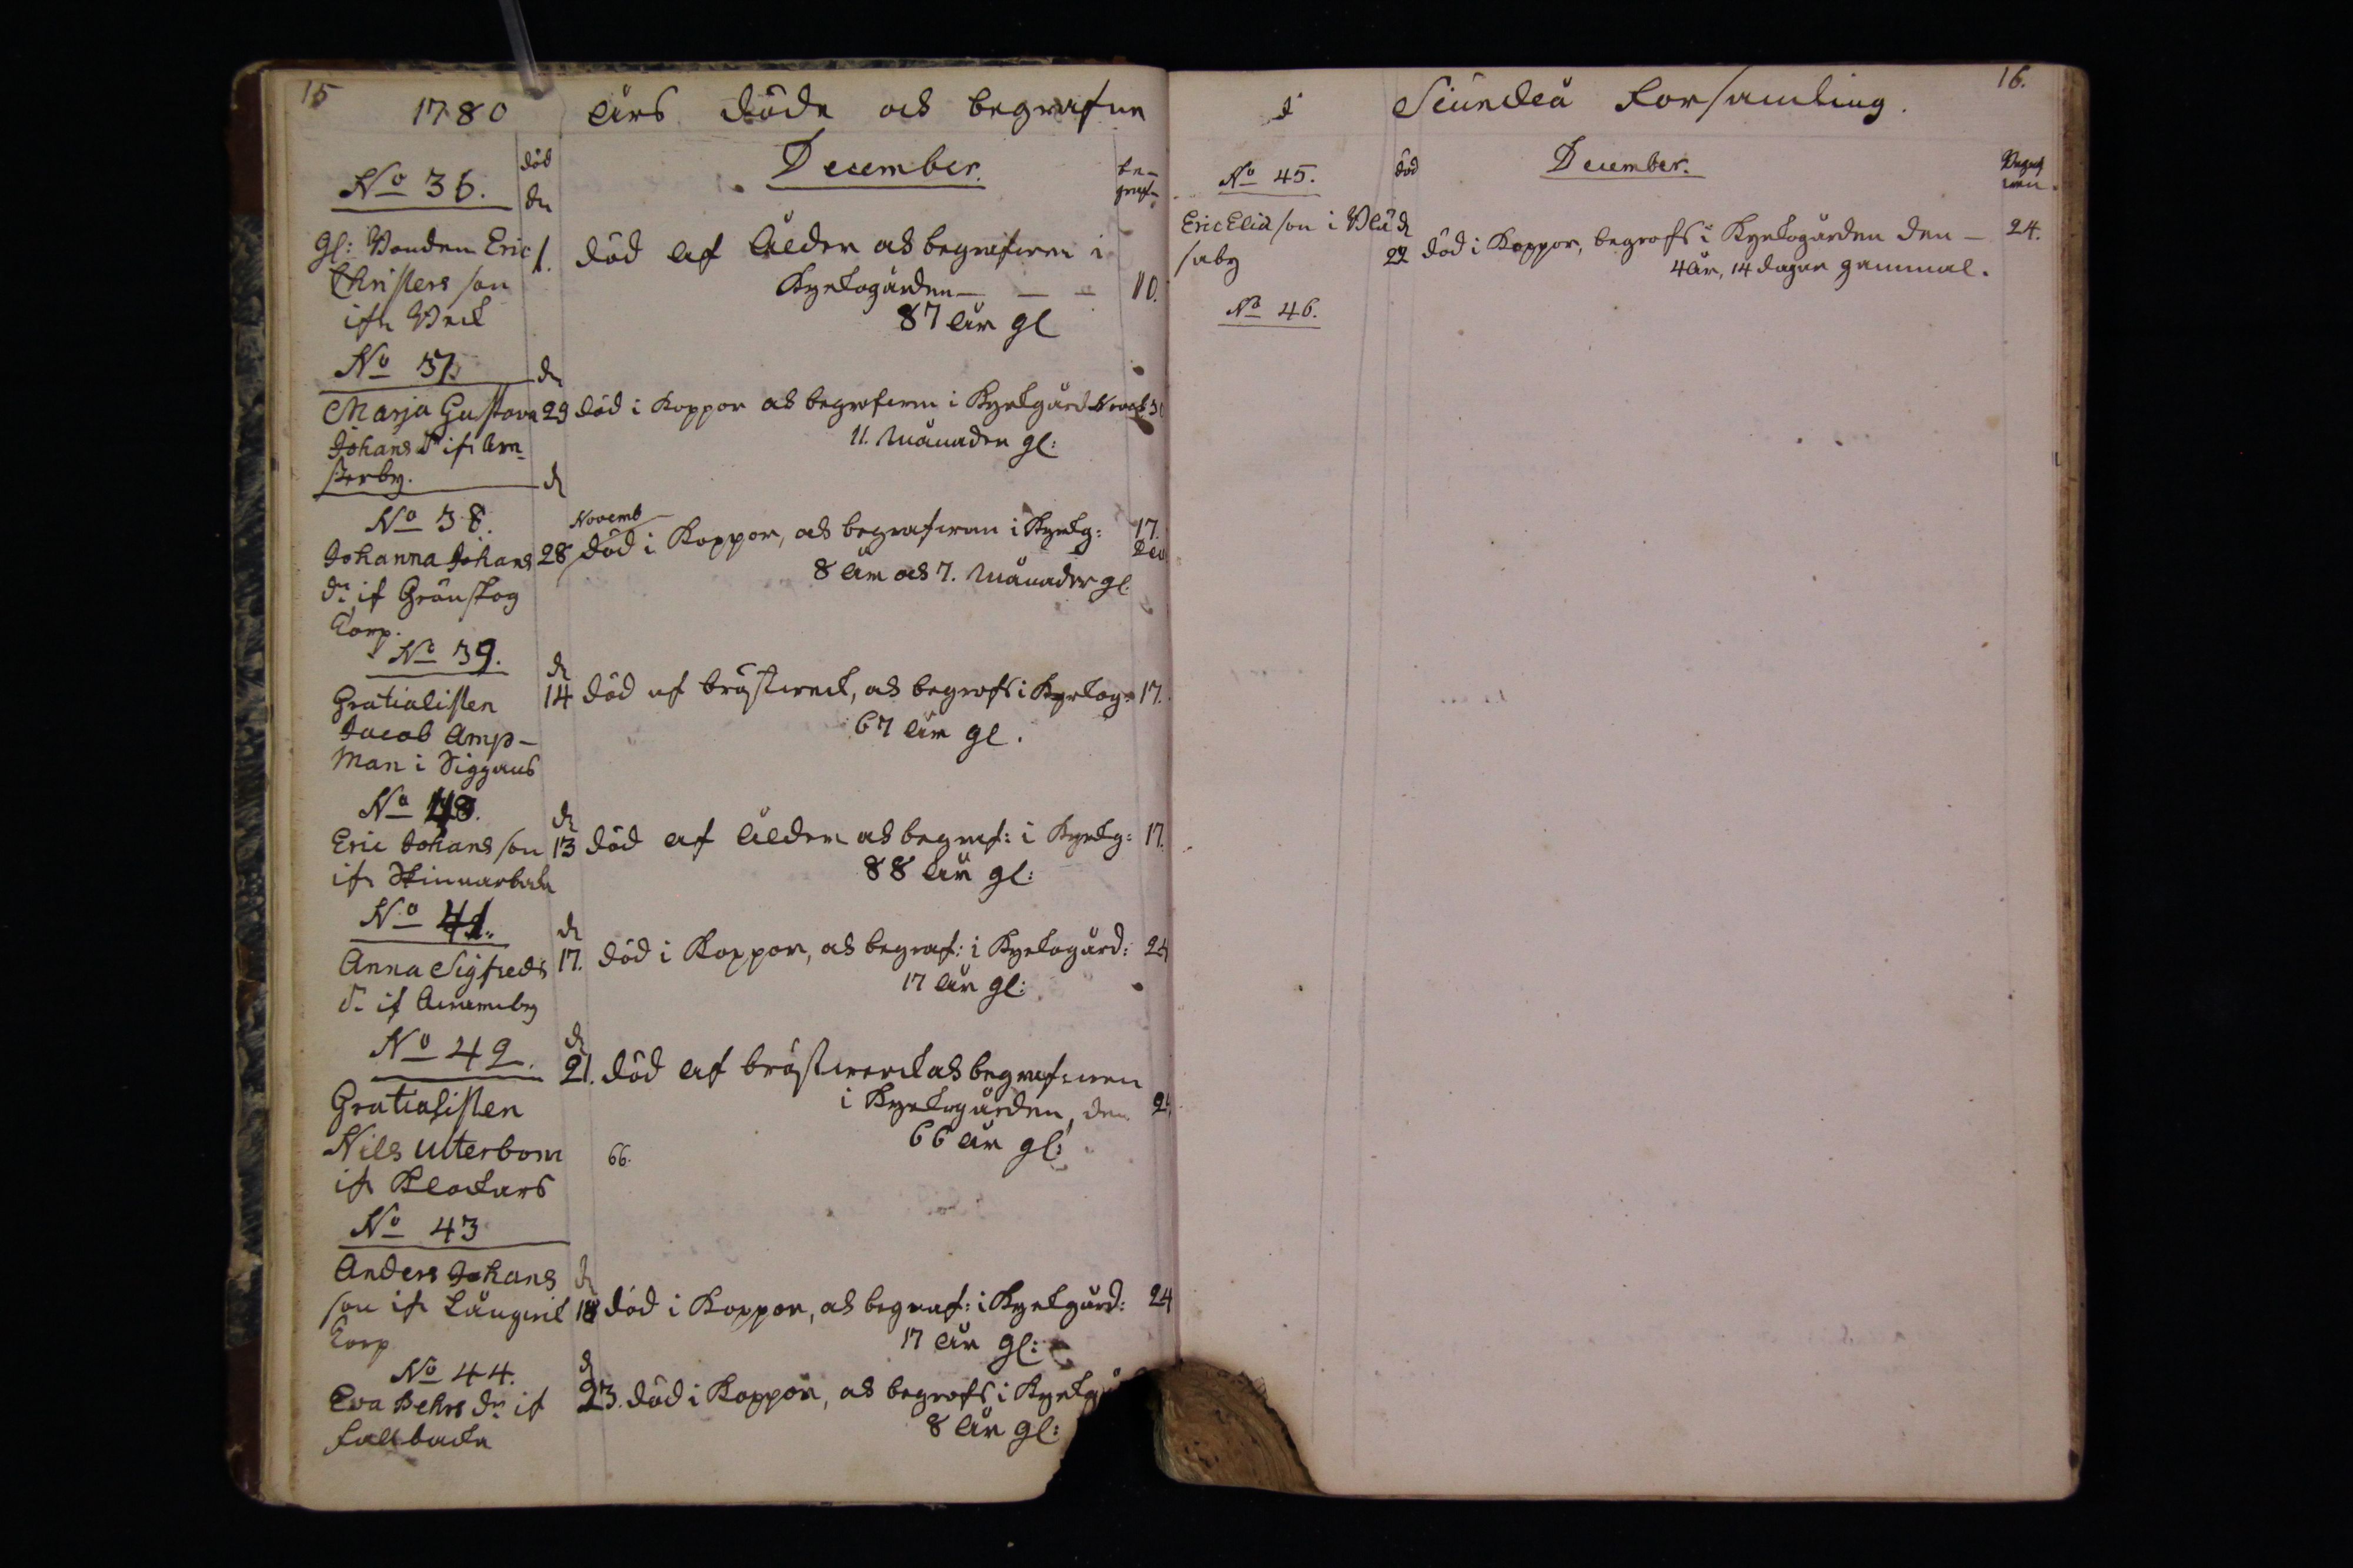 15
1780 åhrs döde och begrafne
December.
död
den
be-
graf-
No 36.
Gl: Bonden Eric
Christers son
ifr Beck
1. död af ålder och begrafven i
Kyrkogården — — — 10.
87 åhr gl
No 37.
den
Marja Gustava
Johans dr ifr
sterby.
29 död i Koppor och begrafven i Kyrkgård Novemb 30
11. Månader gl:
No 38.
d
Johanna Johans
dr if Grönskog
Torp.
Novemb
28 död i Koppor, och begrafven i Kyrkg: 17.
Dec
8 åhr och 7. Månader gl.
No 39.
d
Gratialisten
Jacob Amp-
man i Siggans
14 död af bröstwerck, och begrofs i Kyrkog: 17.
67 åhr gl.
No 40.
d
Eric Johans son
ifr Skinnarbacka
13 död af ålder och begraf: i Kyrkg: 17.
88 åhr gl:
No 41.
d
Anna Sigfreds
d. if
17. död i Koppor, och begraf: i Kyrkogård: 24
17 åhr gl:
No 42.
d
Gratialisten
Nils Utterbom
ifr Klockars
21. död af bröstwerck och begrafven
i Kyrkogården, den 24
66 åhr gl:
66.
No 43
d
Anders Johans
son ifr Långwik
Torp
18 död i Koppor, och begraf: i Kyrkgård: 24
17 åhr gl:
No 44.
d
Eva Behrs dr if
Fallbacka
23. död i Koppor, och begrofs i Kyrkgå
8 åhr gl:
16.
I Siundeå Forsamling.
död
December.
Begraf
wen.
No 45.
Eric Elia son i Blå
saby
d
22 död i Koppor, begrofs i Kyrkogården den — 24.
4 åhr, 14 dagar gammal.
No 46.